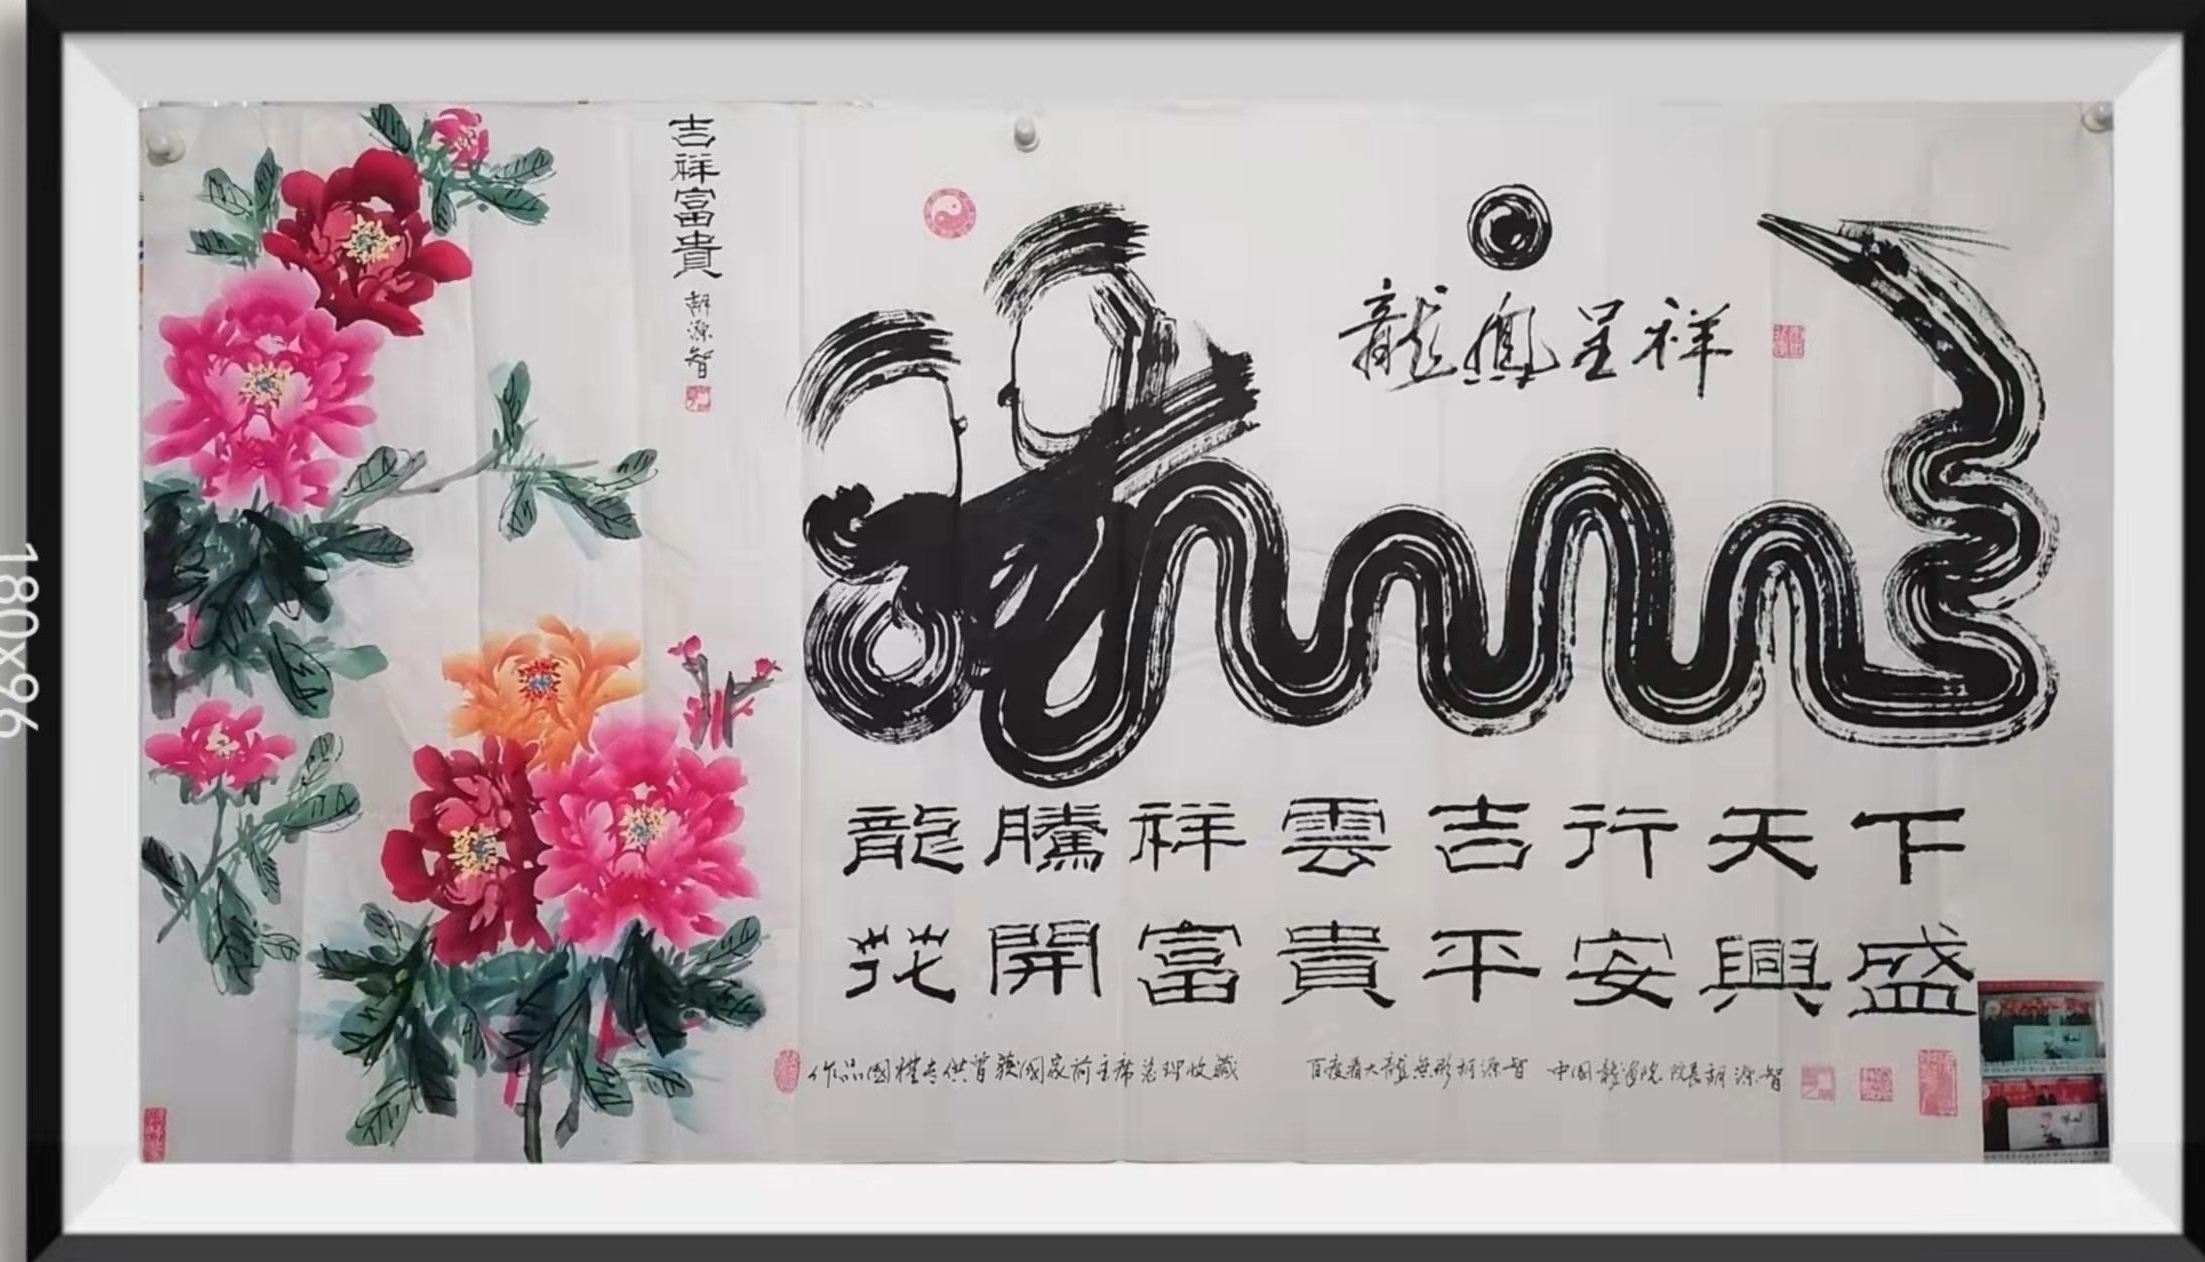 吉祥富貴
胡源智
龍鳳呈祥
龍騰祥雲吉行天下
花開富貴平安興盛
作品國禮专供曾获國家前主席总理收藏
百度看大龍無形胡源智 中国龍海院院長胡源智
180x96